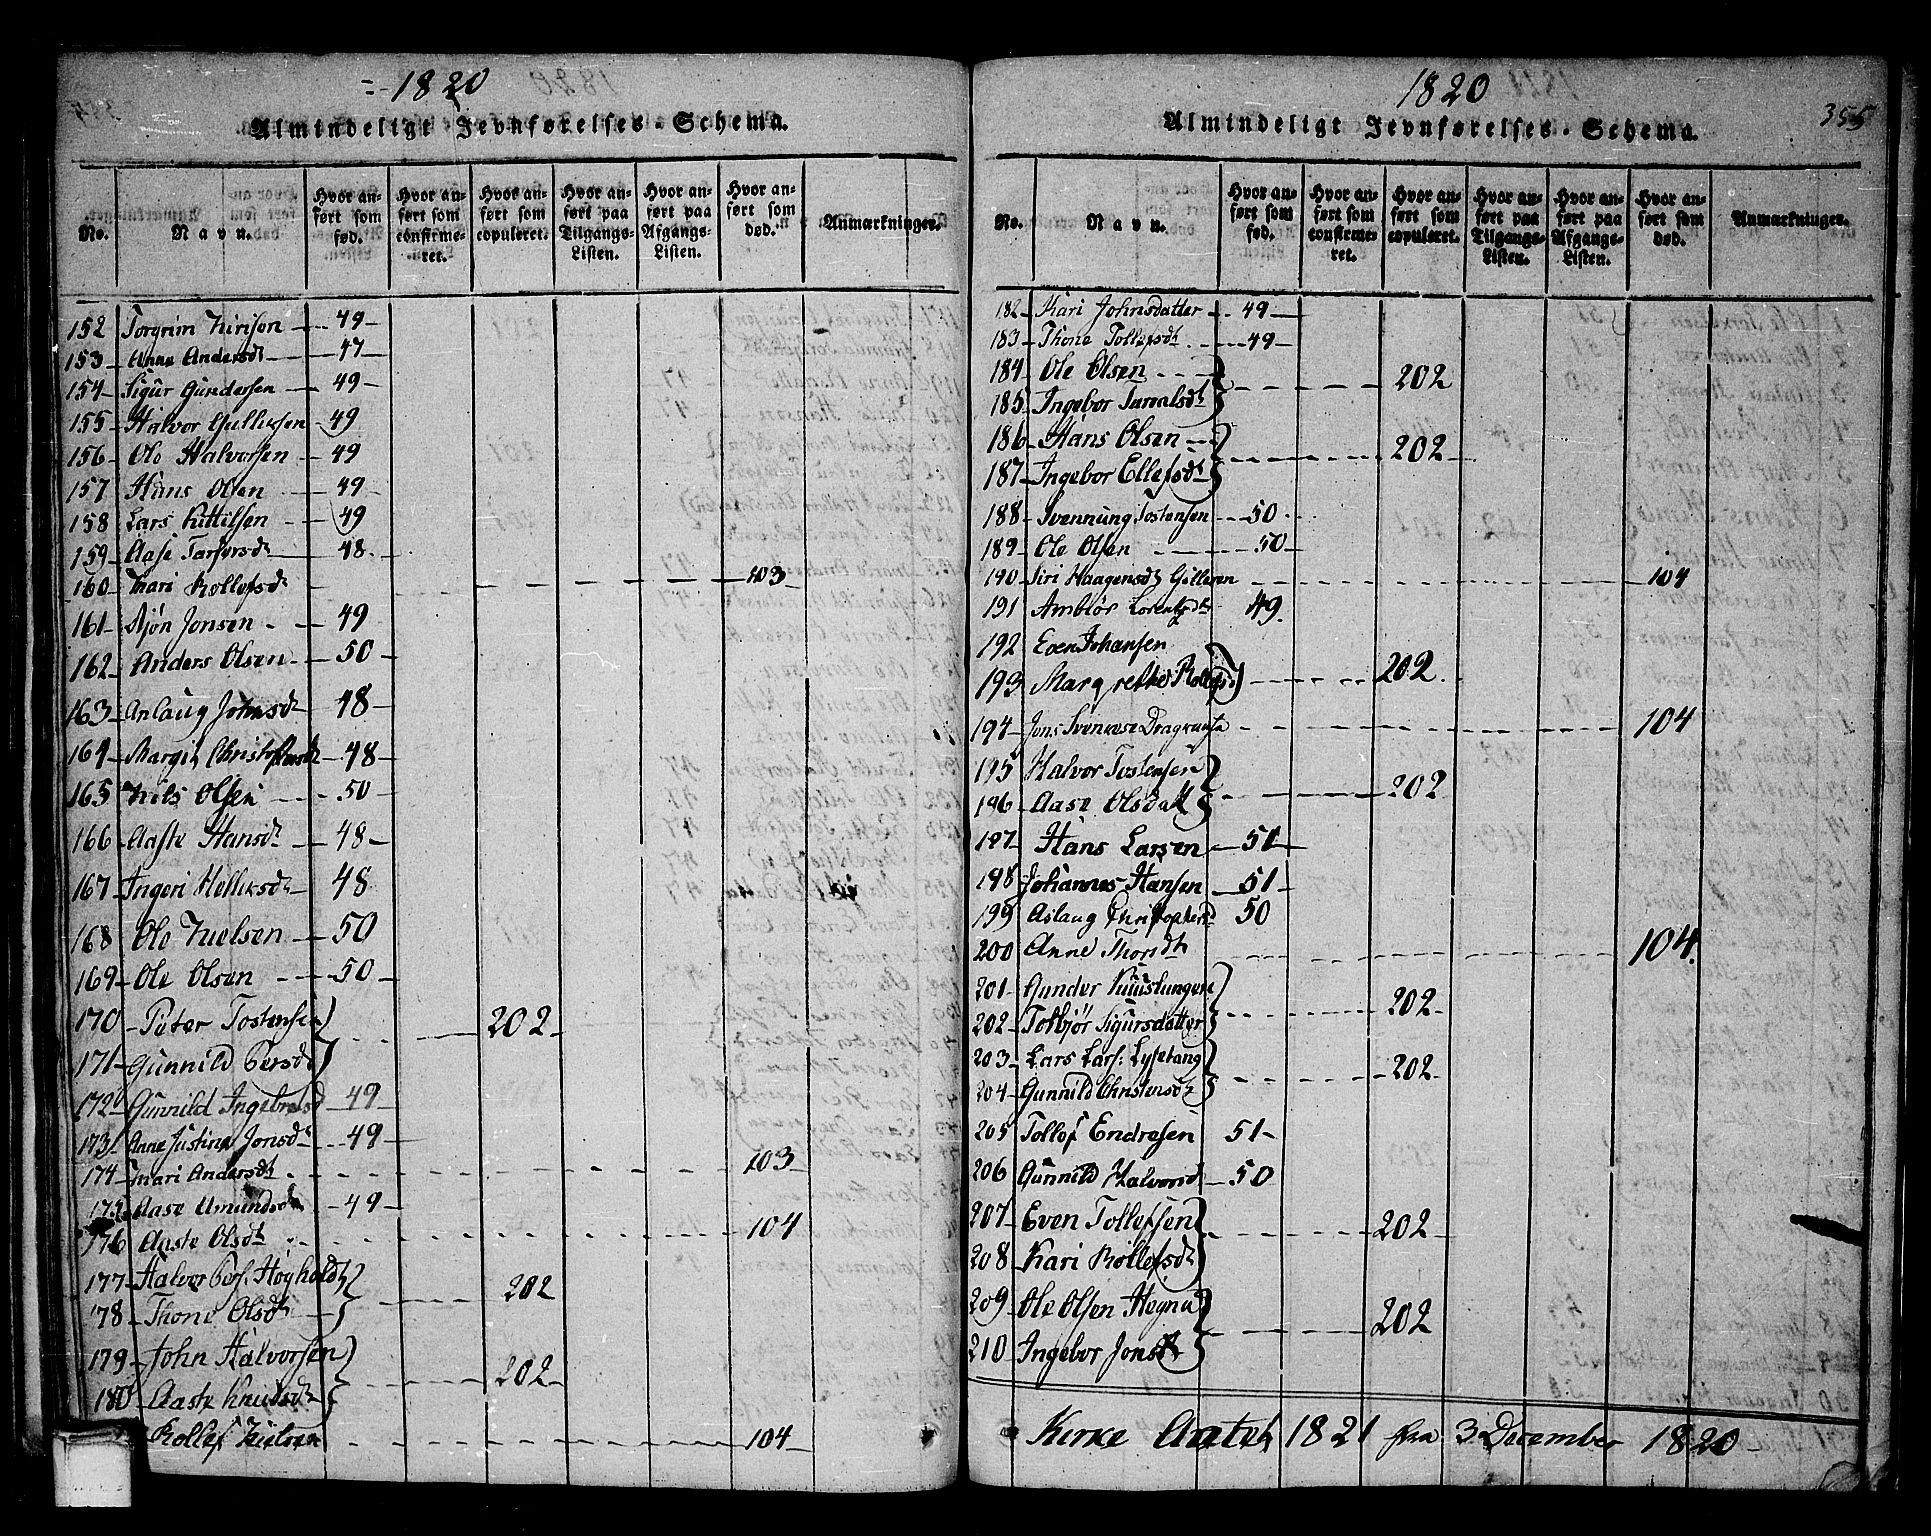 1820
Almindeligt Jevnførelses-Schema.
No.
Navn.
Hvor anført som fød.
Hvor anført som confirmeret.
Hvor anført som copuleret.
Hvor anført paa Tilgangs-Listen.
Hvor anført paa Afgangs-Listen.
Hvor anført som død.
Anmærkninger.
152 Torgrim 49
153 Anne Andersdt 47
154 Sigur Gundersen 49
155 Halvor Gullichsen 49
156 Ole Halvorsen 49
157 Hans Olsen 49
158 Lars Kittilsen 49
159 Aase 48
160 Mari Rollefsdt 103
161 Jonsen 49
162 Anders Olsen 50
163 Anlaug Johnsdt 48
164 Margit 48
165 Nils Olsen 50
166 Aaste Hansdt 48
167 Ingeri 48
168 Ole Nielsen 50
169 Ole Olsen 50
170 Peter Tostensen }
171 Gunnild Persdt } 202
172 Gunnild Ingebretsd 49
173 Anne Justine Jonsdt 49
174 Mari Andersdt 103
175 Aase Amundsdt 49
176 Aaste Olsdt 104
177 Halvor Pers: Høghold }
178 Thone Olsdt } 202
179 John Halvorsen }
180 Aaste Knudsdt } 202
Rollef Nielsen 104
1820
355
Almindeligt Jevnførelses-Schema.
No.
Navn.
Hvor anført som fød.
Hvor anført som confirmeret.
Hvor anført som copuleret.
Hvor anført paa Tilgangs-Listen.
Hvor anført paa Afgangs-Listen.
Hvor anført som død.
Anmærkninger.
182 Kari Johnsdatter 49
183 Thone Tollefsdt 49
184 Ole Olsen }
185 Ingebor } 202
186 Hans Olsen }
187 Ingebor Ellefsdt } 202
188 Svennung Tostensen 50
189 Ole Olsen 50
190 Siri Haagensdt 104
191 Ambiør 49
192 Even Johansen
193 Margrethe } 202
194 Jons 104
195 Halvor Tostensen }
196 Aase Olsdatt } 202
197 Hans Larsen 51
198 Johannes Hansen 51
199 Aslaug Christophersd 50
200 Anne Thordt 104
201 Gunder }
202 Tolbjør Sigursdatter } 202
203 Lars Lars: Lysetang }
204 Gunnild Christensdt } 202
205 Tollof Endresen 51
206 Gunnild Halvorsd 50
207 Even Tollefsen }
208 Kari Rollefsdt } 202
209 Ole Olsen Hegna }
210 Ingebor Jonsdt } 202
Kirke Aaret 1821 fra 3 December 1820